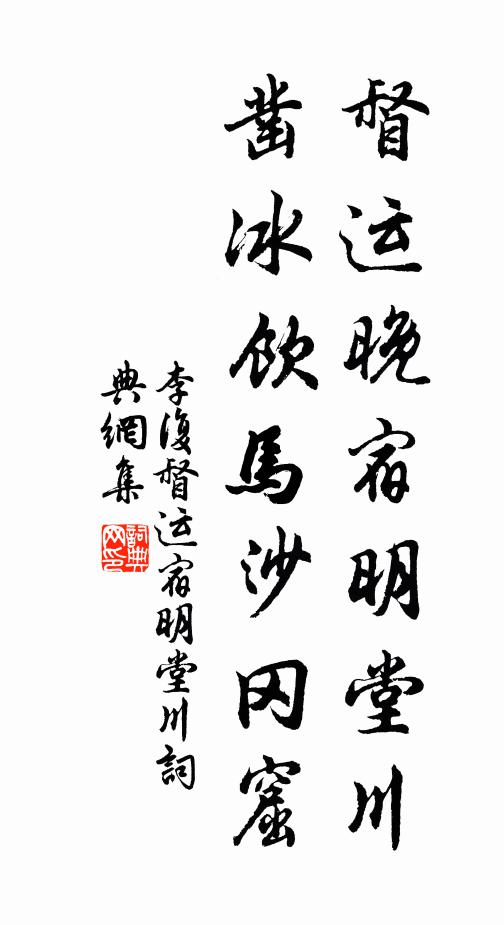 督运晚宿明堂川
凿冰飲馬沙冈窟
李復督运宿明堂川詞
典網集
詞典
网印